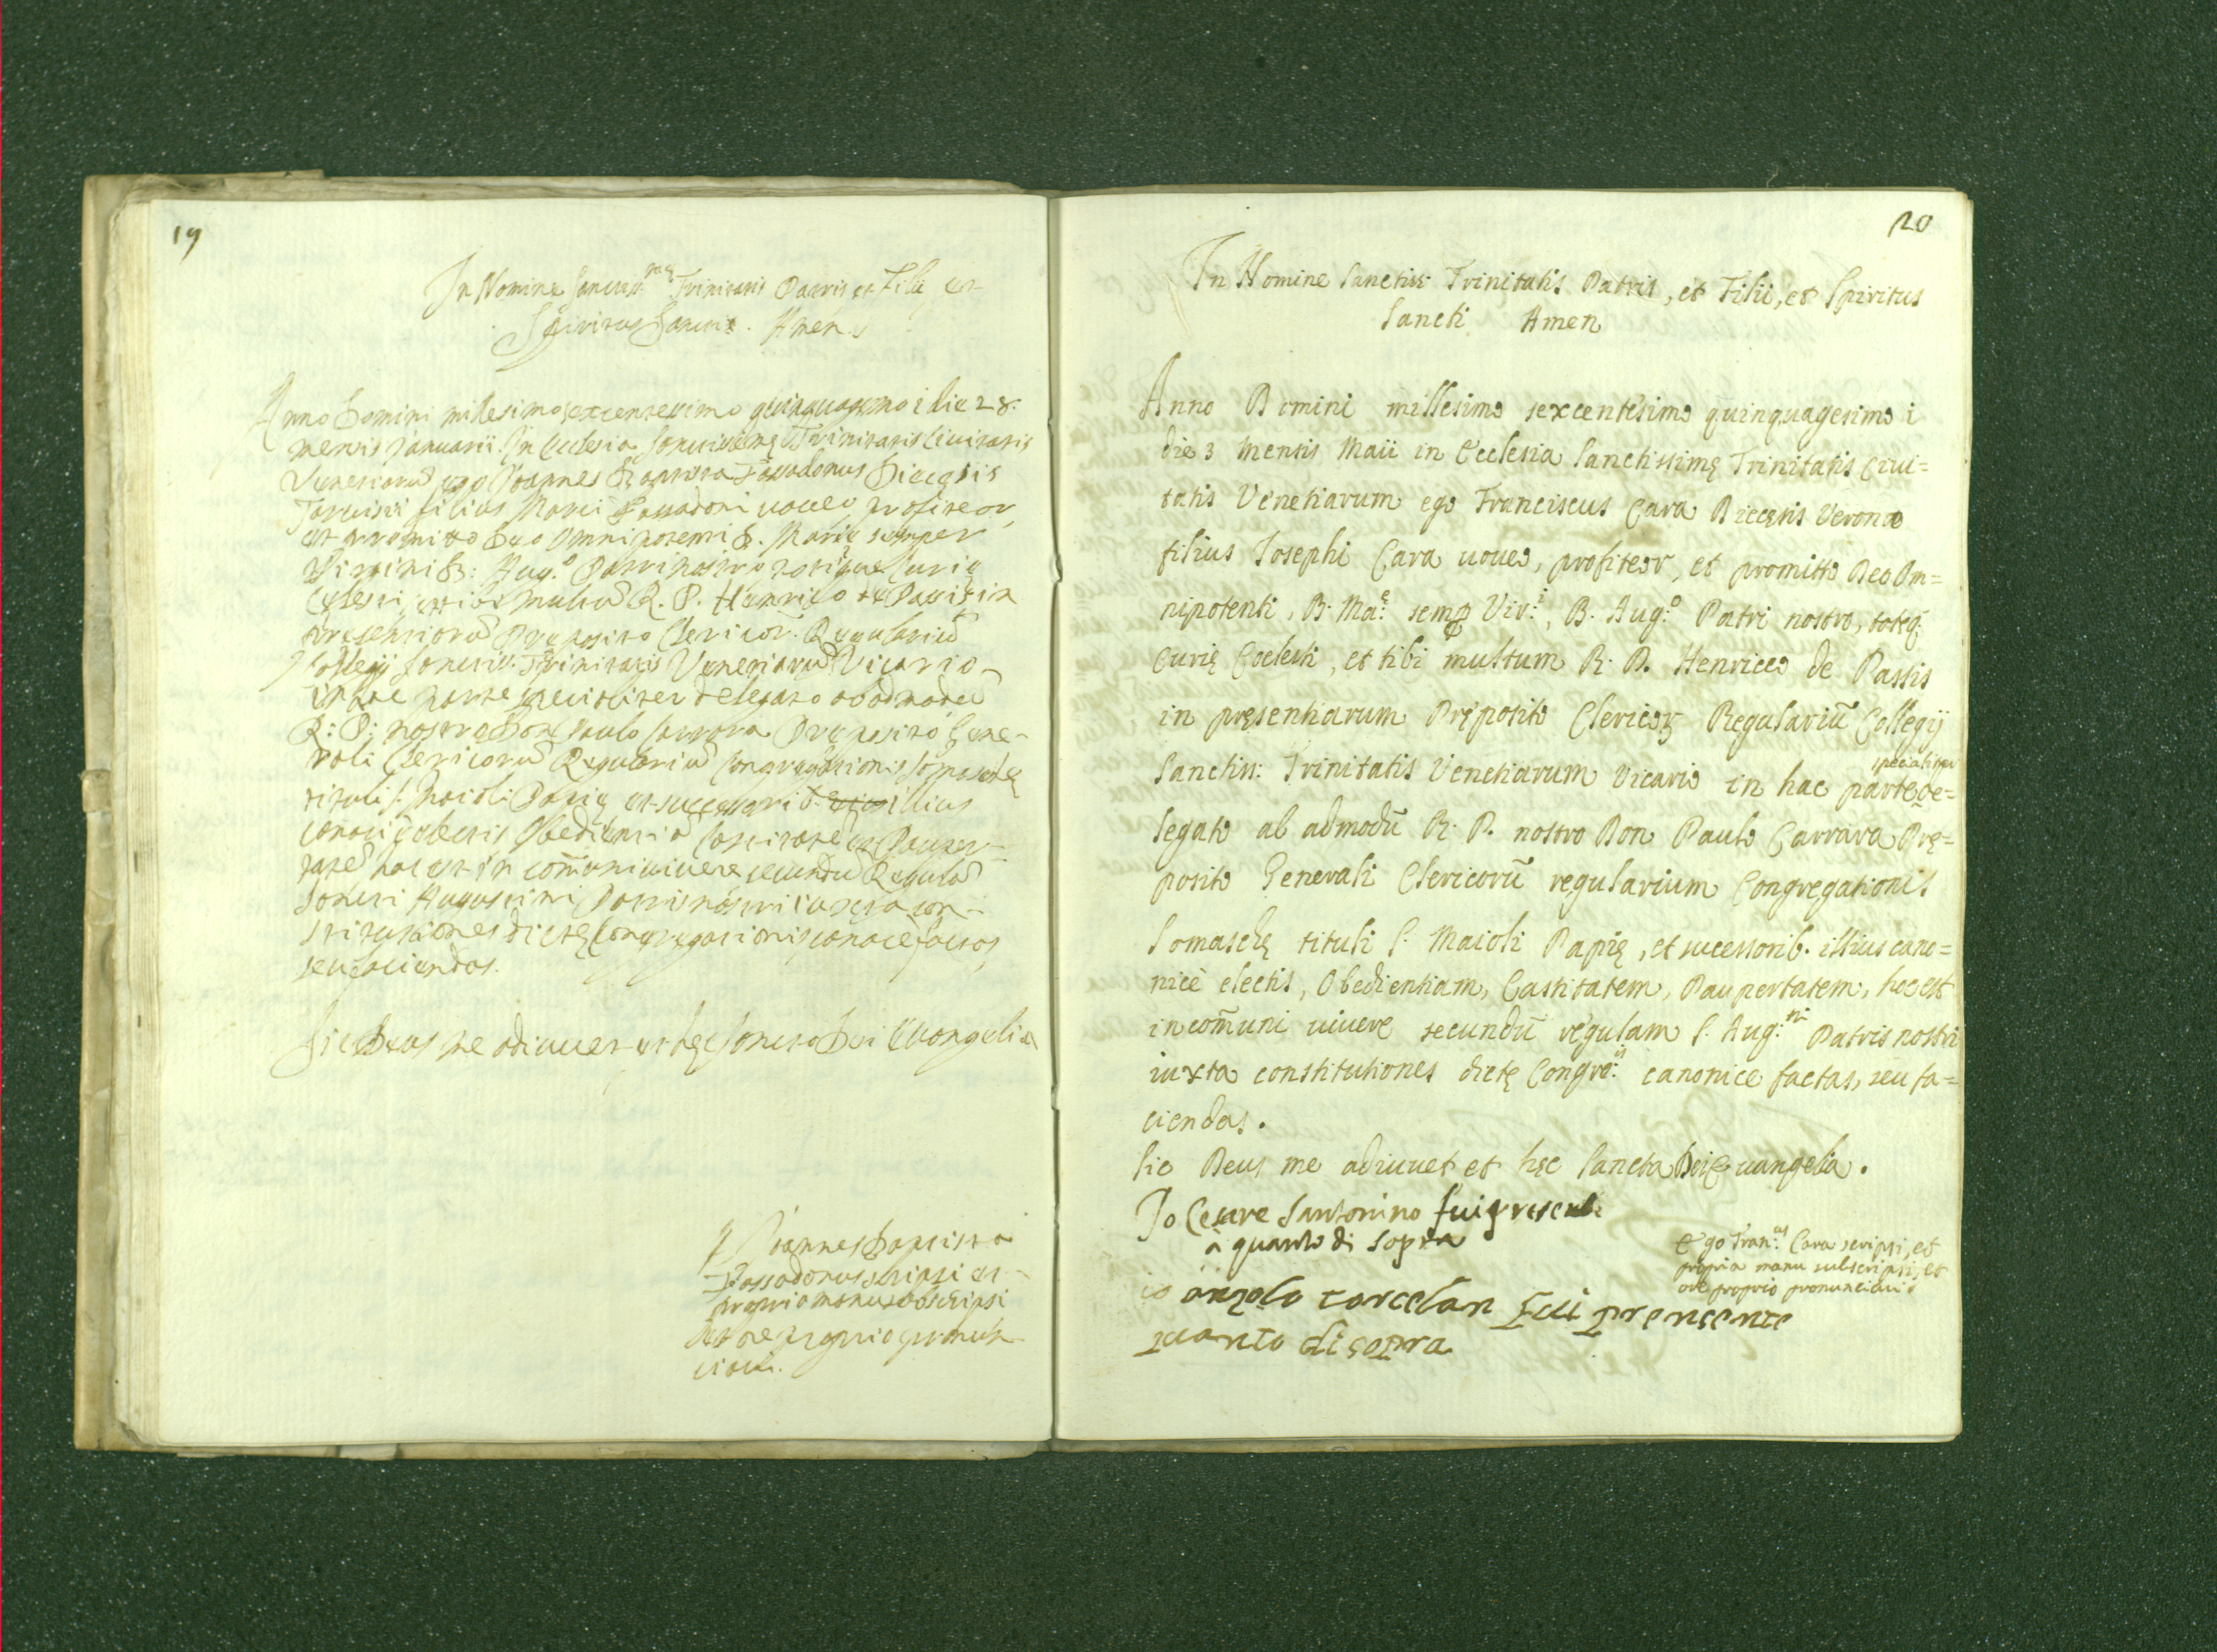 19
In Nomine Sanctiss.mae Trinitatis Patris et Filii et
Spiritus Sancti. Amen.
Anno Domini millesimo sexcentesimo quinquagesimo i die 28.
mensis Januarii. In Ecclesia Sanctissimę Trinitatis Civitatis
Venetiarũ ego Joannes Baptista Diecęsis
Tarvisii filius Marci voveo profiteor,
et promitto Deo Omnipotenti B. Marię semper
Virgini B: Aug.o Patri nostro totique Curię
Cęlesti, et tibi multũ R. P. Henrico de Passis in
presentiarũ Pręposito Clericor. Regulariũ
Collegij Sanctiss. Trinitatis Venetiarũ Vicario
in hac parte specialiter delegato ab admodũ
R: P: nostro Don Paulo Carrara Pręposito Gene-
rali Clericorũ Regulariũ Congregationis Somaschę
tituli S. Maioli Papię et successorib. illius
canonicè electis Obedientiã Castitatẽ et Pauper-
tatẽ hoc est in com̃uni vivere secundũ Regulã
Sancti Augustini Patris nostri iuxta con-
stitutiones dictę Congregationis canonicè factas,
seu faciendas.
Sic Deus me adiuvet et hęc Sancta Dei Evangelia
Joannes Baptista
scripsi et
propria manu subscripsi
et ore proprio pronun-
ciavi.
20
In Nomine Sanctiss: Trinitatis Patris, et Filii, et Spiritus
Sancti Amen
Anno Domini millesimo sexcentesimo quinquagesimo i
die 3 mensis Maii in Ecclesia Sanctissimę Trinitatis Civi=
tatis Venetiarum ego Franciscus Cara Diecęsis Verona
filius Josephi Cara voveo, profiteor, et promitto Deo Om=
nipotenti, B. Ma:ę semp Vir:i, B. Aug:o Patri nostro, totiq;
Curię Coelesti, et tibi multum R. P. Henrico de Passis
in pręsentiarum Pręposito Clericor Regulariũ Collegij
specialiter
Sanctiss: Trinitatis Venetiarum Vicario in hac parte de=
legato ab admodũ R. P. nostro Don Paulo Carrara Prę=
posito Generali Clericorũ regularium Congregationis
Somaschę tituli S. Maioli Papię, et sucessorib. illius cano=
nicè electis, Obedientiam, Castitatem, Paupertatem, hoc est
in com̃uni vivere secundũ regulam S. Aug:ni Patris nostri
iuxta constitutiones dictę Congre:is canonice factas, seu fa=
ciendas.
Sic Deus me adiuvet et hęc Sancta Dei Evangelia.
Io Cesare Santonino fui presente
a quanto di sopra
Ego Fran:us Cara scripsi, et
propria manu subscripsi, et
ore proprio pronunciavi
io anzolo torcelan fui prensente
quanto di sopra